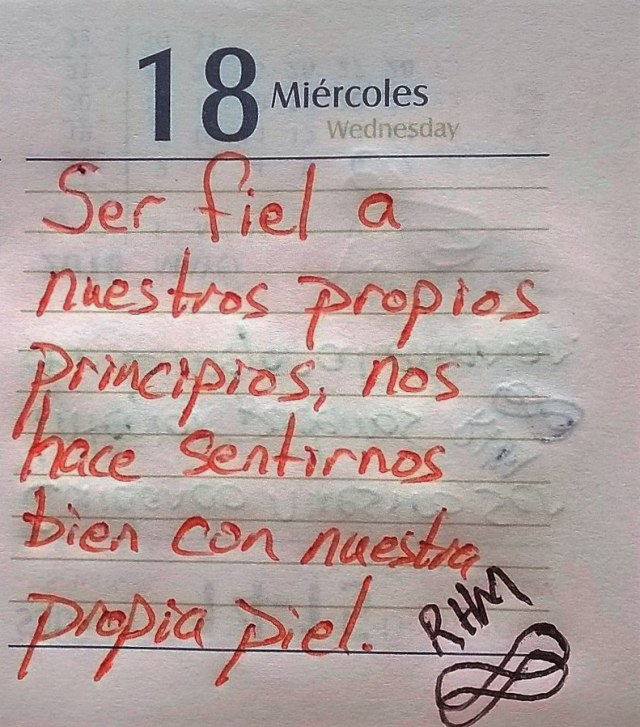 18 Miércoles
Wednesday
Ser fiel a
nuestros propios
principios, nos
hace sentirnos
bien con nuestra
propia piel.
RHM